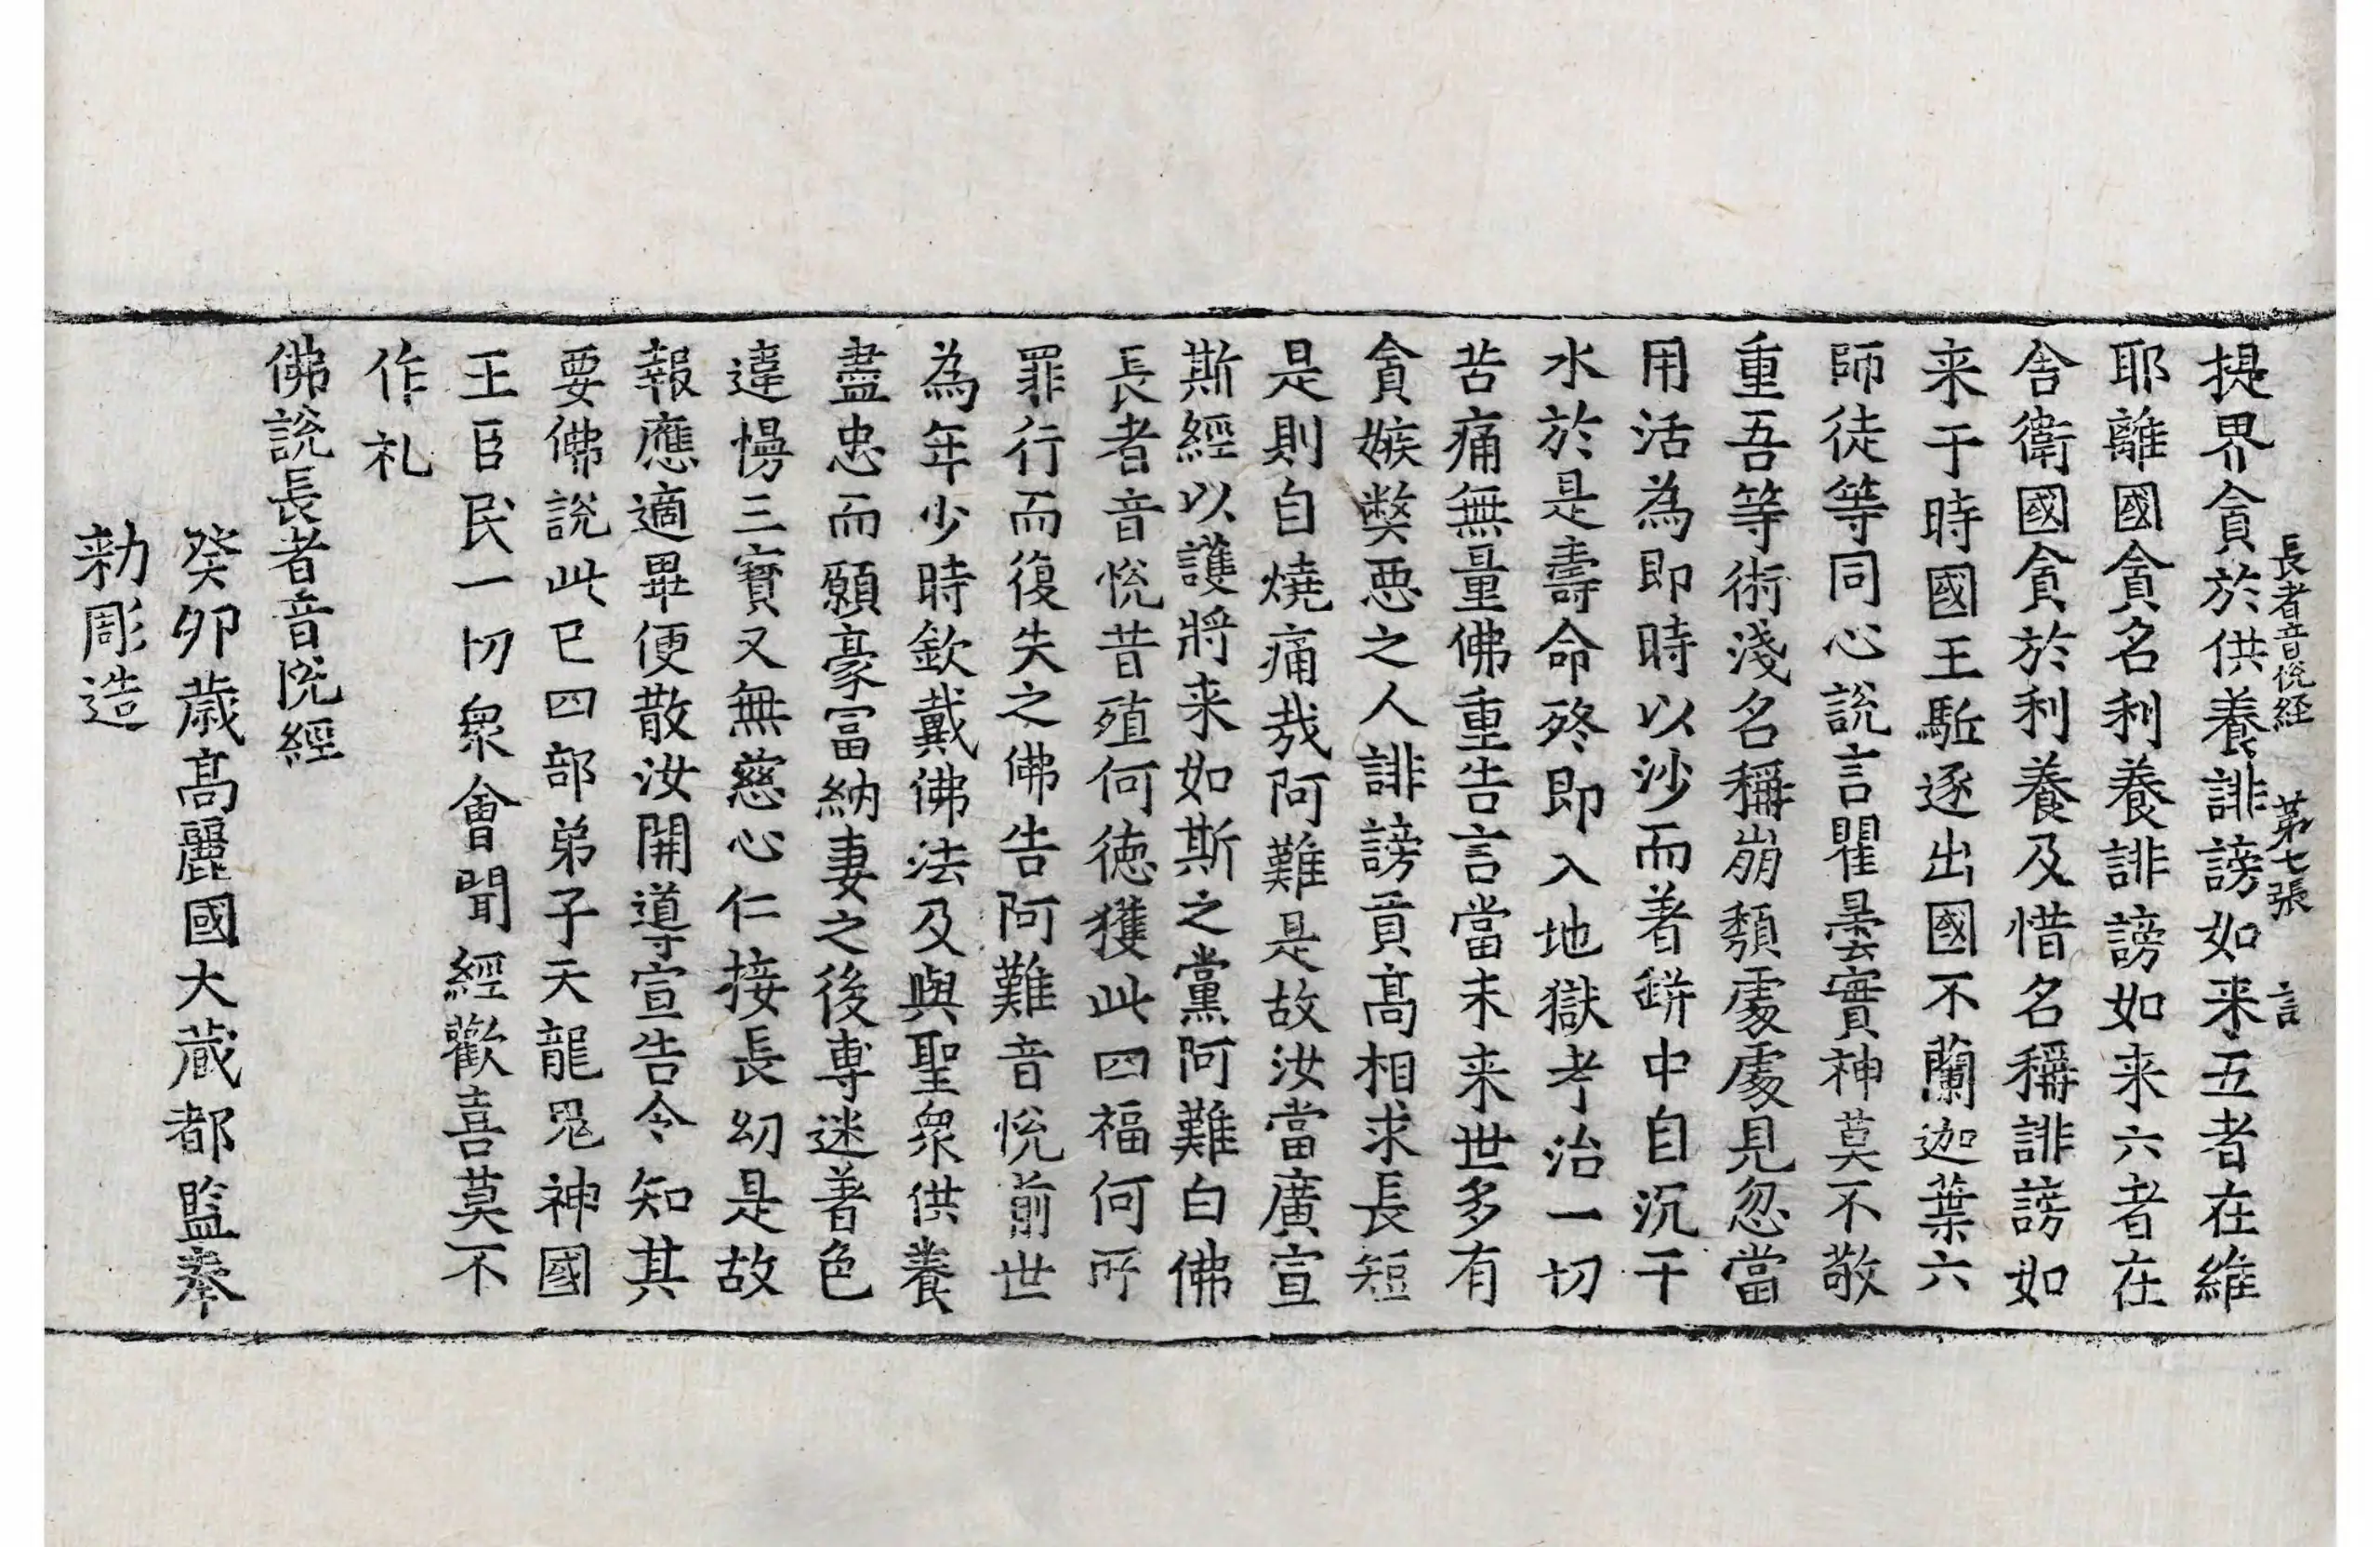 長者音悅経 第七張 言
提界貪於供養誹謗如来五者在維
耶離國貪名利養誹謗如来六者在
舍衛國貪於利養及惜名稱誹謗如
来于時國王駈逐出國不蘭迦葉六
師徒等同心說言瞿曇實神莫不敬
重吾等術淺名稱崩頹處處見忽當
用活為即時以沙而著缾中自沉于
水於是壽命終即入地獄考治一切
苦痛無量佛重告言當未来世多有
貪嫉弊惡之人誹謗貢高相求長短
是則自燒痛哉阿難是故汝當廣宣
斯經以護將来如斯之黨阿難白佛
長者音悅昔殖何德獲此四福何所
罪行而復失之佛告阿難音悅前世
為年少時欽戴佛法及與聖衆供養
盡忠而願豪富納妻之後專迷著色
違慢三寶又無慈心仁接長幼是故
報應適畢便散汝開導宣告令知其
要佛說此已四部弟子天龍鬼神國
王臣民一切衆會聞經歡喜莫不
作礼
佛說長者音悅經
癸卯歲高麗國大藏都監奉
勑彫造